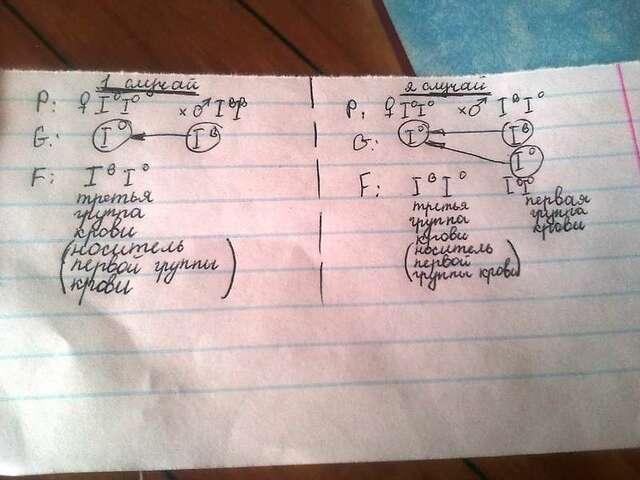 1 случай
P: ♀ I⁰I⁰ × ♂ IᴮIᴮ
G: I⁰ ← Iᴮ
F: Iᴮ I⁰
третья
группа
крови
(носитель
первой группы
крови)
2 случай
P. ♀ I⁰I⁰ × ♂ Iᴮ I⁰
G: I⁰ ← Iᴮ
I⁰
F: Iᴮ I⁰ I⁰I⁰
третья
группа
крови
(носитель
первой
группы крови)
первая
группа
крови